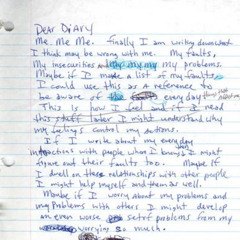 Dear Diary
Me. Me. Me. finally I am writing down what
I think may be wrong with me. My faults,
My insecurities my my my my problems.
Maybe if I make a list of my faults,
I could use this as a reference to
be aware of the everyday
This is how I feel and if I read
this stuff later I might understand why
my feelings control my actions.
If I write about my everyday
interactions with people whom I know, I might
figure out their faults too. Maybe if
I dwell on the relationships with other people
I might help myself and them as well.
Maybe if I worry about my problems and
my problems with others I might develop
an even worse set of problems from my
worrying so much.